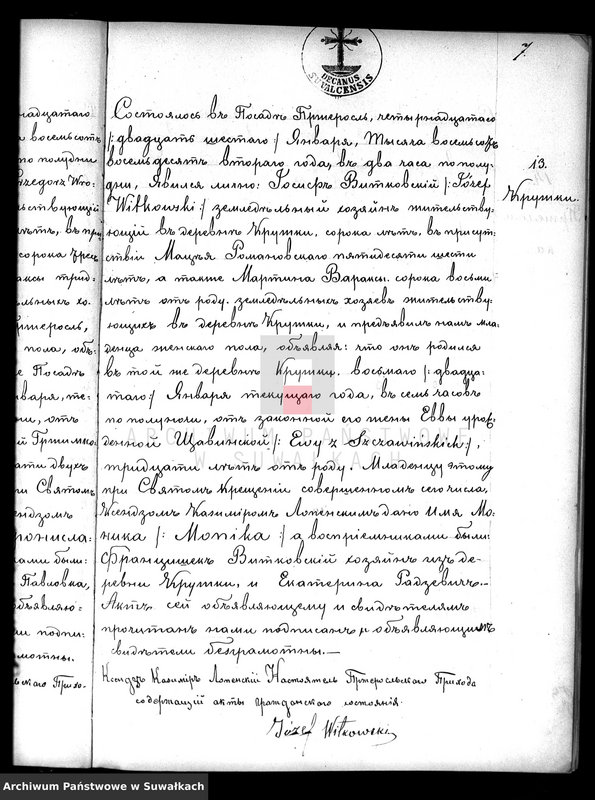 DECANUS
SUVALCENSIS
7.
13.
Крутки.
Состоялось въ Посадѣ Пржеросль, четырнадцатаго
/: двадцать шестаго :/ Января, Тысяча восемьсотъ
восемьдесятъ втораго года, въ два часа по полу-
дни, Явился лично: Госифъ Витковскій /: Józef
Witkowski :/ земледѣльный хозяинъ жительству-
ющій въ деревнѣ Крутки, сорока лѣтъ, въ присут-
ствіи Мацѣя Романовскаго пятидесяти шести
лѣтъ, а также Мартина Вараксы. сорока восьми
лѣтъ отъ роду. земледѣльныхъ хозяевъ жительству-
ющихъ въ деревнѣ Крутки, и предъявилъ намъ мла-
денца женскаго пола, объявляя: что онъ родился
въ той же деревнѣ Крутки. восьмаго /: двадца-
таго :/ Января текущаго года, въ семь часовъ
по полуночи, отъ законной его жены Еввы урож-
денной Щавинской /: Ewy z Szczawińskich :/,
тридцати лѣтъ отъ роду. Младенцу этому
при Святомъ Крещеніи совершенномъ сего числа,
Ксендзомъ Казиміромъ Лопенскимъ дано Имя Мо-
ника /: Monika :/ а воспріемниками были:
Францишекъ Витковскій хозяинъ изъ де-
ревни Крутки, и Екатерина Радзевичъ.-
Актъ сей объявляющему и свидѣтелямъ
прочитанъ нами подписанъ и объявляющимъ
свидѣтели безграмотны. —
Ксендзъ Казиміръ Лопенскій Настоятель Пржеросльскаго Прихода
содержащій акты гражданскаго состоянія
Józef Witkowski
ARCHIWUM PAŃSTWOWE
W SUWAŁKACH
Archiwum Państwowe w Suwałkach